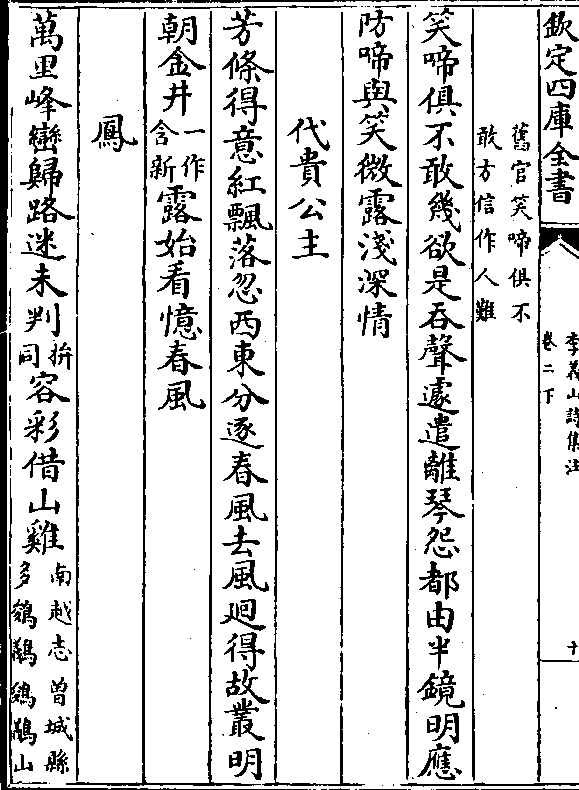 欽定四庫全書
李義山詩集注
卷二下
十
舊官笑啼俱不
敢方信作人難
笑啼俱不敢幾欲是吞聲遽遣離琴怨都由半鏡明應
防啼與笑微露淺深情
代貴公主
芳條得意紅飄落忽西東分逐春風去風迴得故叢明
朝金井一作含新露始看憶春風
鳳
萬里峰巒歸路迷未判拚同容彩借山雞南越志曾城縣多鵕鸃鵕鸃山